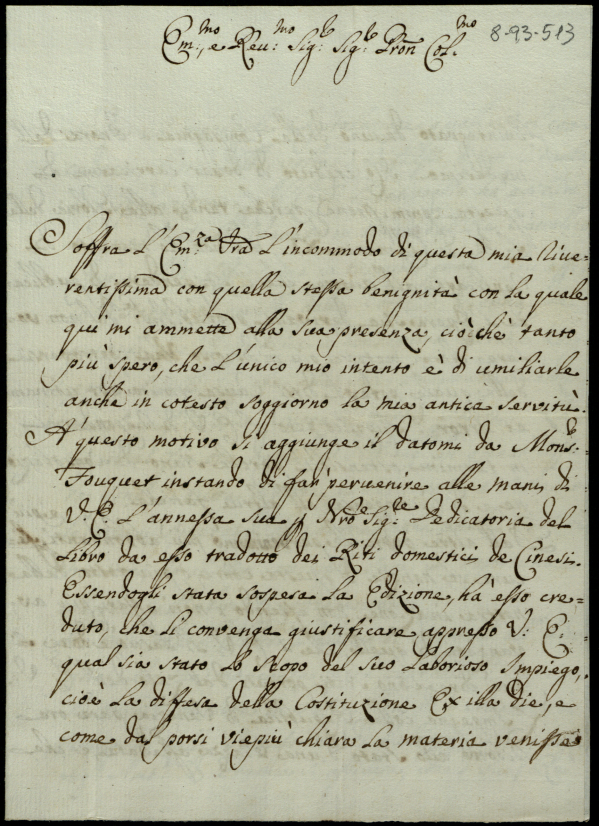 Em.mo, e Reu.mo Sig.r Sig.r Pron Col.mo
8-93-513
Soffra l'Em.za Vra l'incommodo di questa mia riue=
rentissima con quella stessa benignità con la quale
qui mi ammette alla sua presenza, ciòchè tanto
più spero, che l'unico mio intento è di umiliarle
anche in cotesto soggiorno la mia antica servitù.
A' questo motivo si aggiunge il datomi da Mons.r
Fouquet instando di far' peruenire alle mani di
V. E. l'annessa sua p Nro Sig.re Dedicatoria del
Libro da esso tradotto dei Riti domestici de Cinesi.
Essendogli stata sospesa la Edizione, hà esso cre=
duto, che li convenga giustificare appresso V. E.
qual sia stato lo scopo del suo laborioso Impiego,
cioè la diffesa della Costituzione Ex illa die, e
come dal porsi viepiù chiara la materia venisse